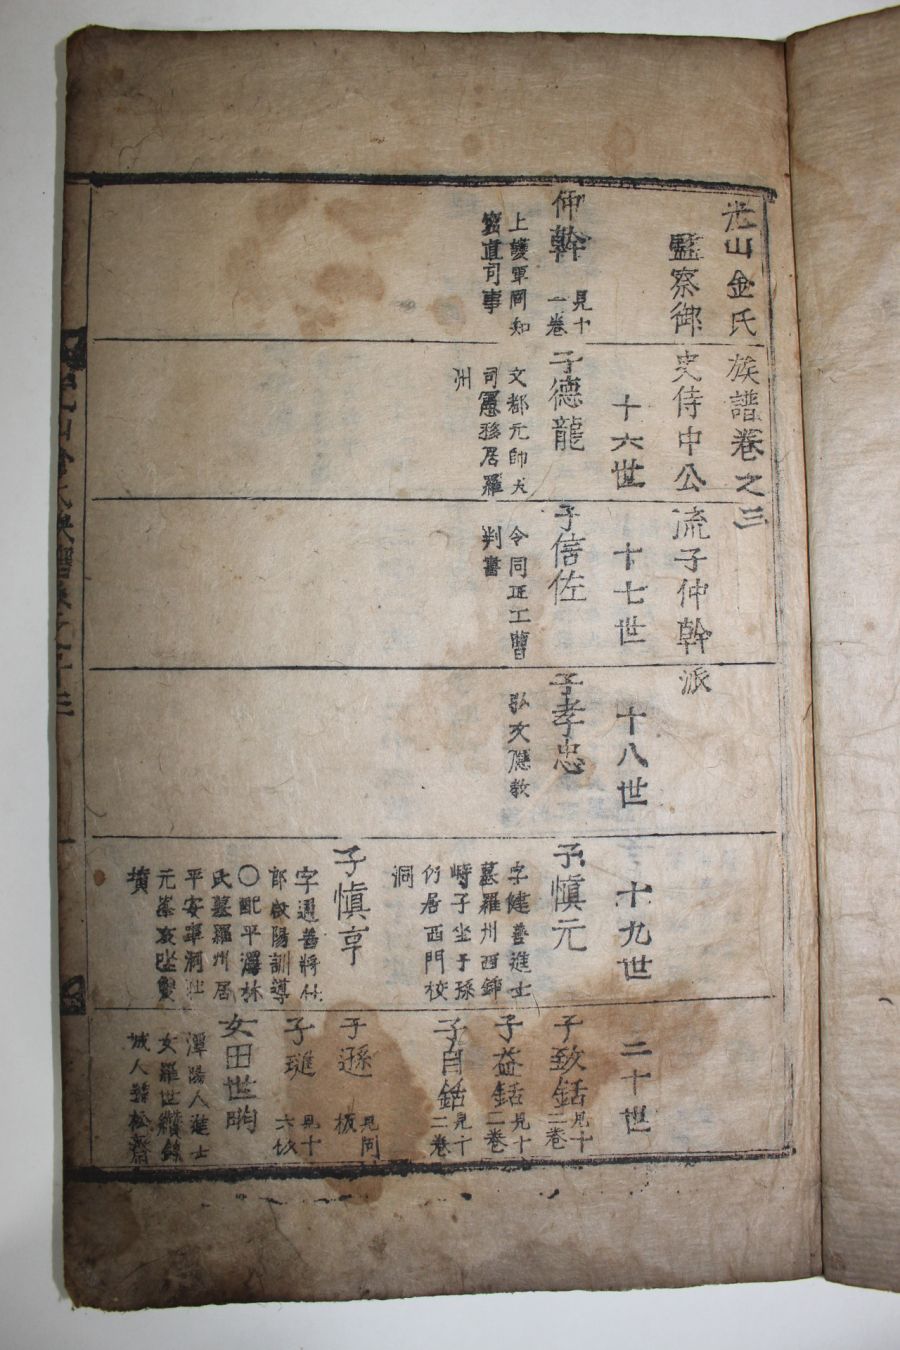 光山金氏族譜卷之三
監察御史侍中公流子仲幹派
仲幹
見十
一卷
上護軍同知
密直司事
十六世
子德龍
文都元帥大
司憲移居羅
州
十七世
子信佐
令同正工曹
判書
十八世
子孝忠
弘文應敎
十九世
子愼元
字健善進士
墓羅州西錦
峙子坐子孫
仍居西門校
洞
子愼亨
字通善將仕
郞啟陽訓導
〇配平澤林
氏墓羅州居
平安
墳
二十世
子致銛
見十
二卷
子益銛
見十
二卷
子自銛
見十
二卷
子遜
見同
板
子璡
見十
六板
女田世昀
潭陽人進士
女羅世纘錦
城人號松齋